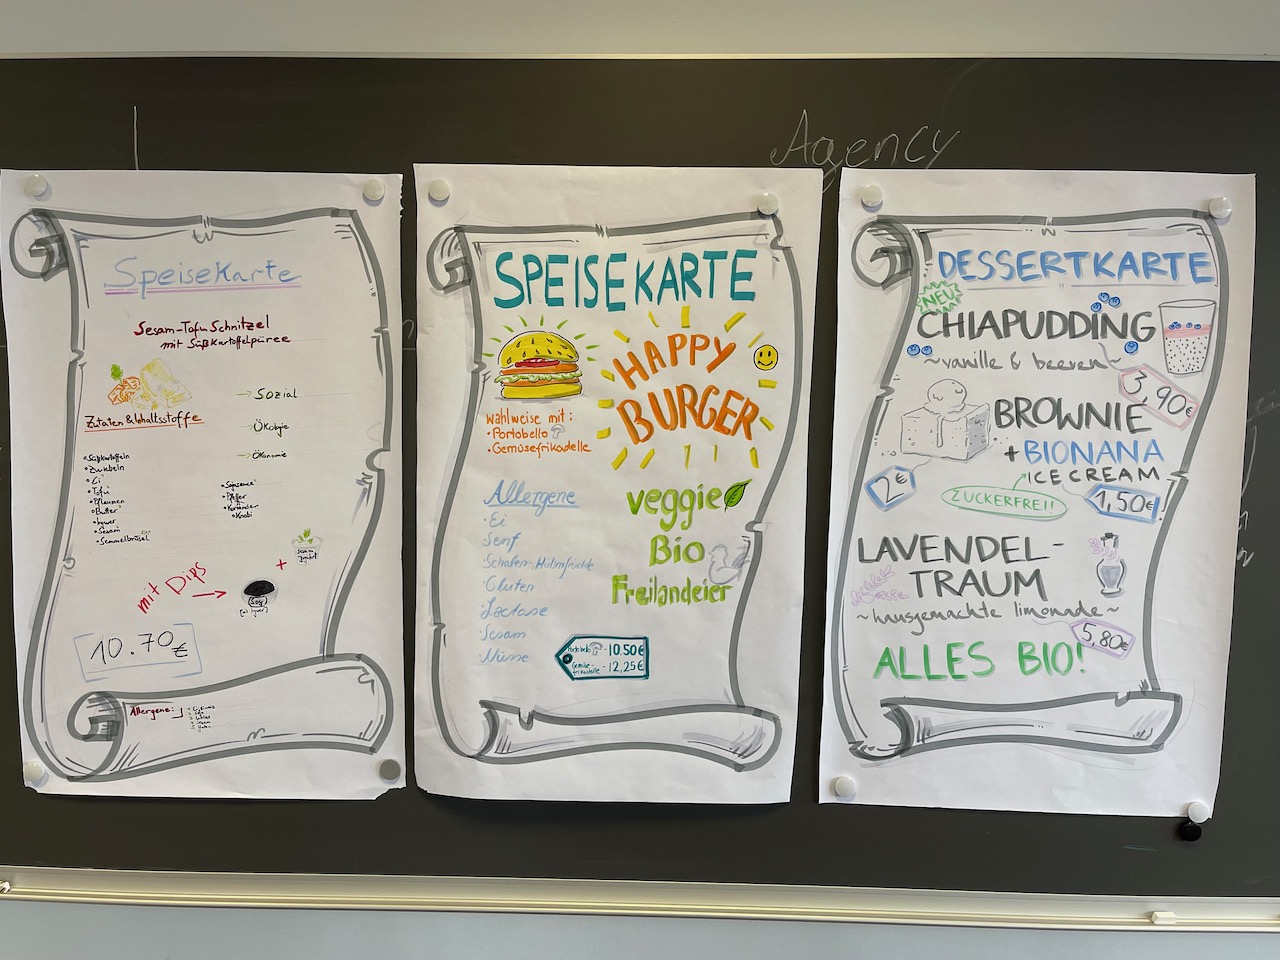 Agency
Speisekarte
Sesam-Tofu Schnitzel
mit Süßkartoffelpüree
Zutaten & Inhaltsstoffe
• Süßkartoffeln
• Zwiebeln
• Ei
• Tofu
• Pflaumen
• Butter
• Ingwer
• Sesam
• Semmelbrösel
→ Sozial
→ Ökologie
→ Ökonomie
• Pfeffer
• Koriander
• Knobi
mit Dips →
+
10.70€
Allergene:
SPEISEKARTE
HAPPY
BURGER
Wahlweise mit:
• Portobello
• Gemüsefrikadelle
Allergene
• Ei
Senf
Schalen-, Hülsenfrüchte
Gluten
Lactose
Sesam
Nüsse
veggie
Bio
Freilandeier
Portobello - 10.50€
Gemüse-
frikadelle - 12,25€
DESSERTKARTE
NEU
CHIAPUDDING
~vanille & beeren~
3,90€
BROWNIE
+ BIONANA
ICE CREAM
2€
ZUCKERFREI!!
1,50€!
LAVENDEL-
TRAUM
~hausgemachte limonade~
5,80€
ALLES BIO!